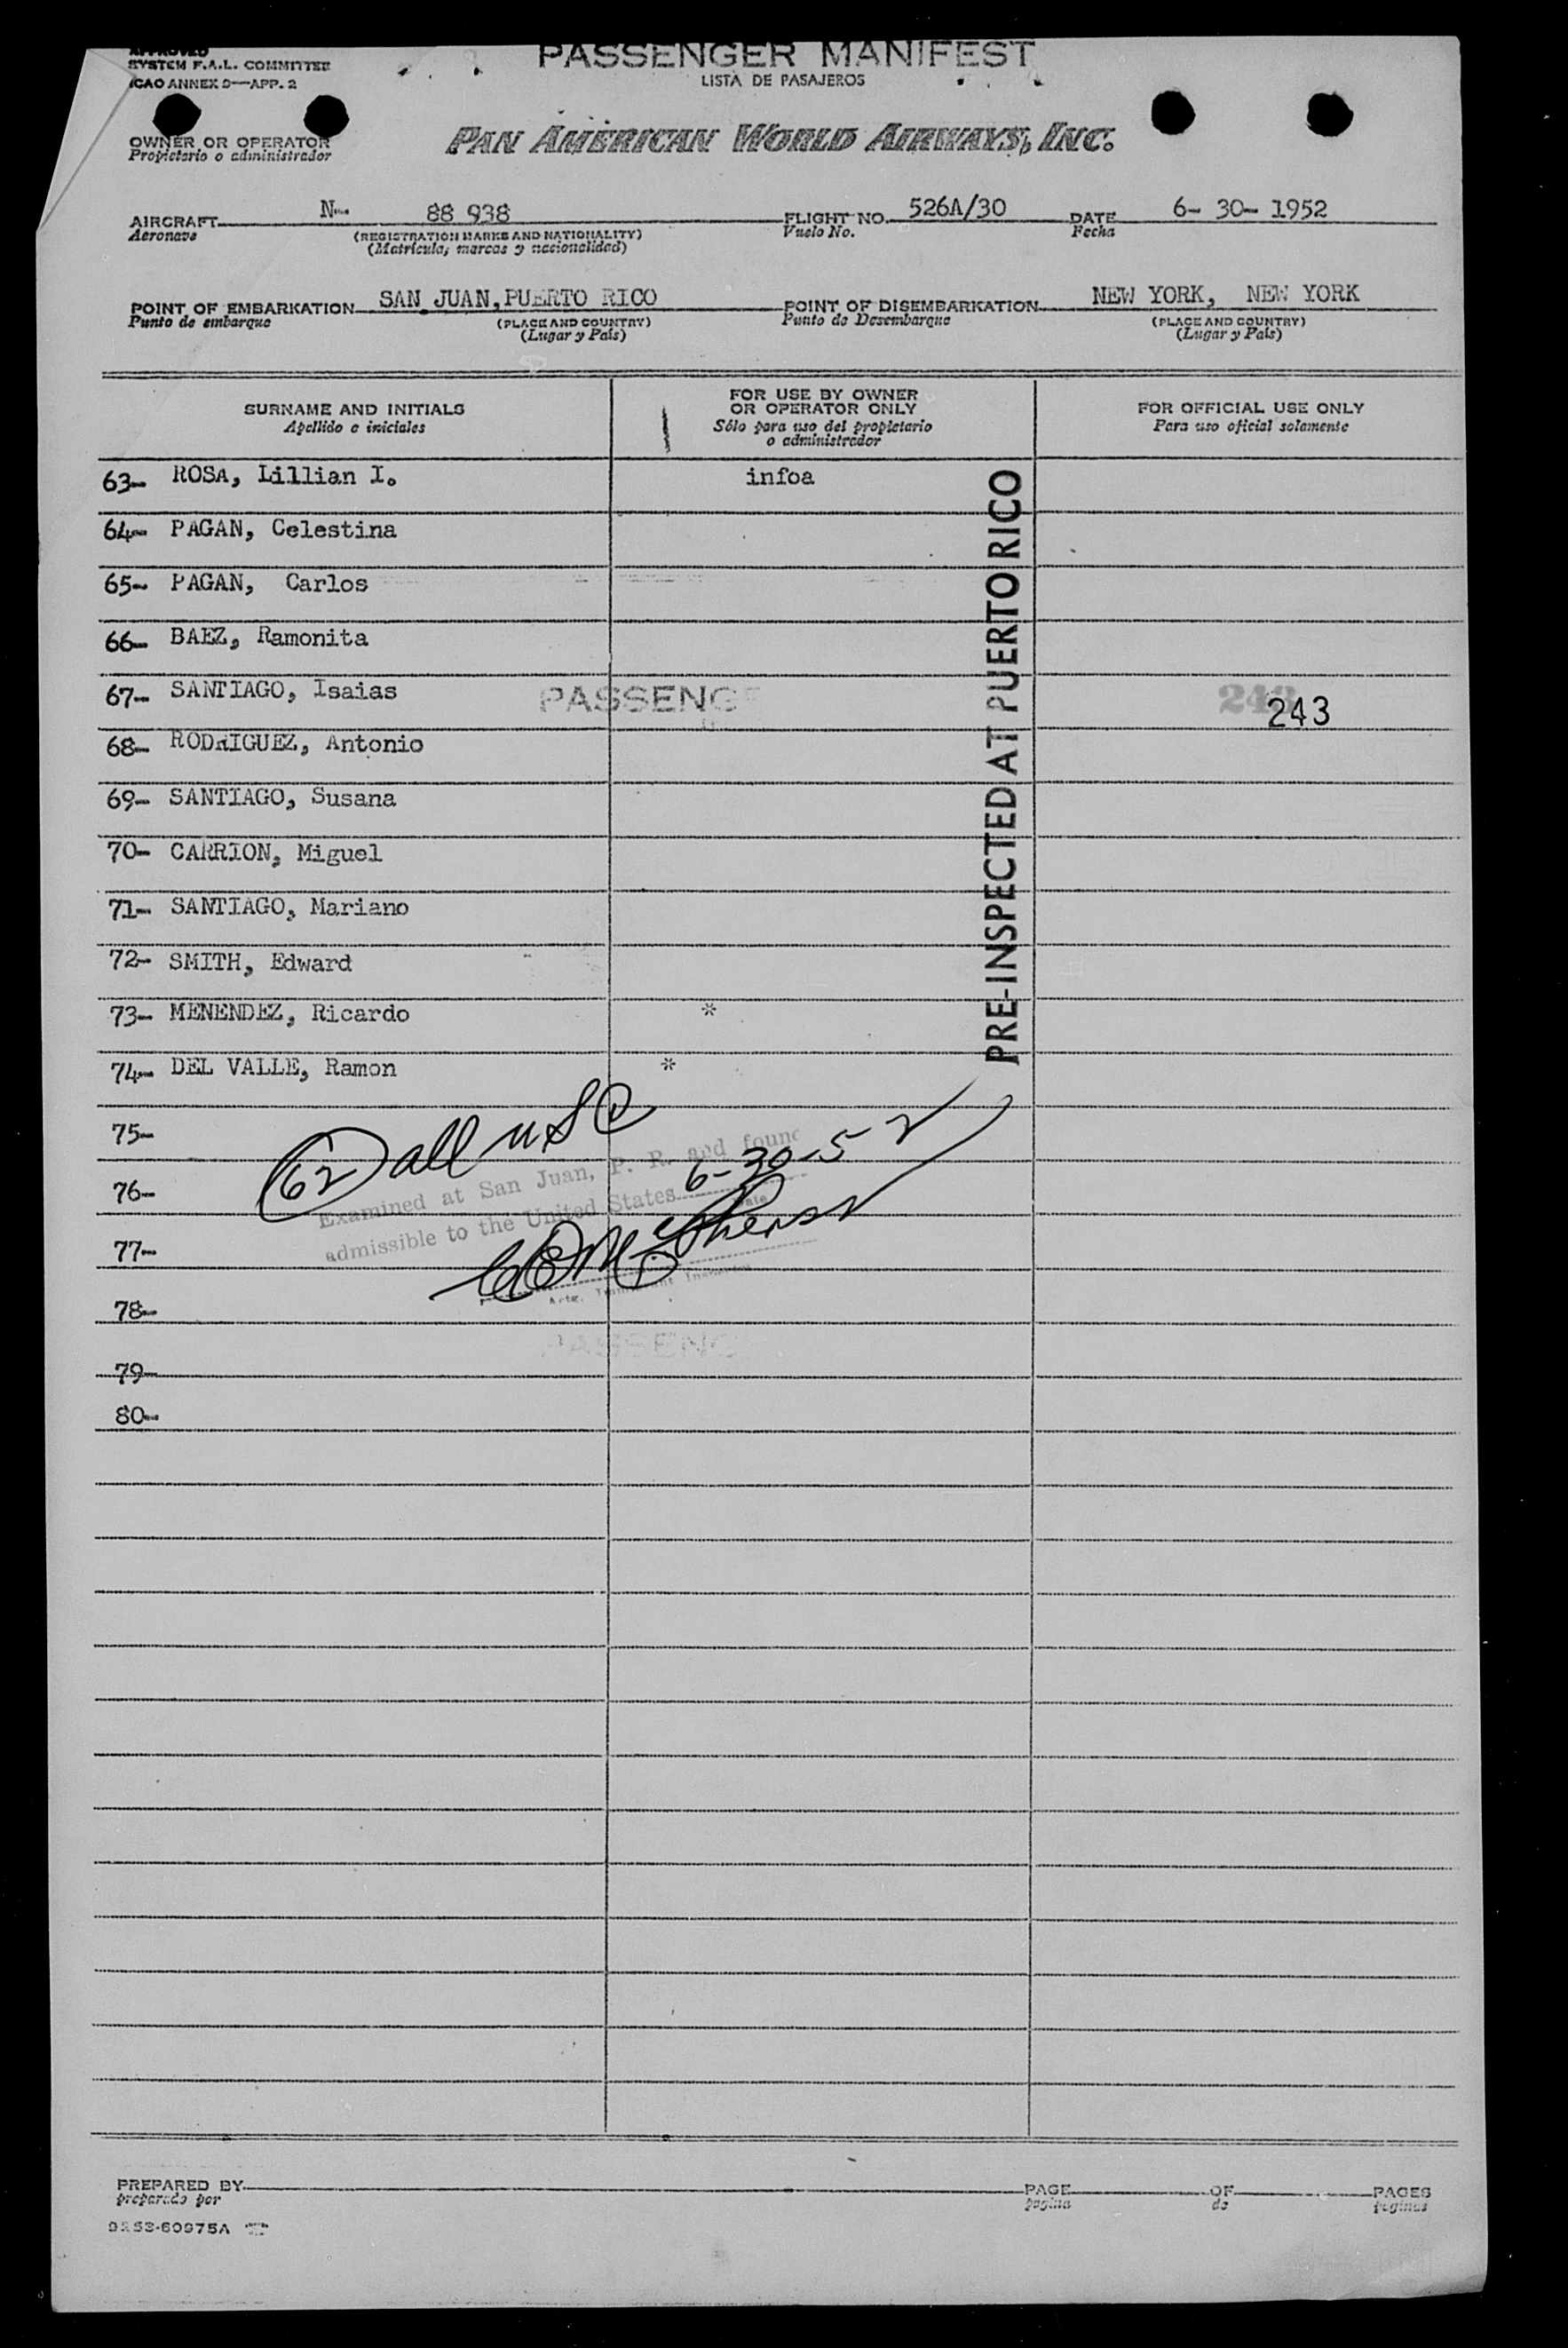 APPROVED
SYSTEM F.A.L. COMMITTEE
ICAO ANNEX 9—APP. 2
PASSENGER MANIFEST
LISTA DE PASAJEROS
OWNER OR OPERATOR
Propietario o administrador
PAN AMERICAN WORLD AIRWAYS, INC.
AIRCRAFT N- 88 938
Aeronave
(REGISTRATION MARKS AND NATIONALITY)
(Matricula, marcas y nacionalidad)
FLIGHT NO. 526A/30
Vuelo No.
DATE 6- 30- 1952
Fecha
POINT OF EMBARKATION SAN JUAN, PUERTO RICO
Punto de embarque
(PLACE AND COUNTRY)
(Lugar y País)
POINT OF DISEMBARKATION NEW YORK, NEW YORK
Punto de Desembarque
(PLACE AND COUNTRY)
(Lugar y País)
SURNAME AND INITIALS
Apellido e iniciales
FOR USE BY OWNER
OR OPERATOR ONLY
Sólo para uso del propietario
o administrador
FOR OFFICIAL USE ONLY
Para uso oficial solamente
63- ROSA, Lillian I. infoa
64- PAGAN, Celestina
65- PAGAN, Carlos
66- BAEZ, Ramonita
67- SANTIAGO, Isaias
PASSENG
243
243
68- RODRIGUEZ, Antonio
69- SANTIAGO, Susana
70- CARRION, Miguel
71- SANTIAGO, Mariano
72- SMITH, Edward
73- MENENDEZ, Ricardo *
74- DEL VALLE, Ramon *
PRE-INSPECTED AT PUERTO RICO
75-
76-
77-
78-
79-
80-
62 all USC
Examined at San Juan, P. R. and found
admissible to the United States 6-30-52
Date
PASSENG
PREPARED BY
preparado por
PAGE OF PAGES
pagina de paginas